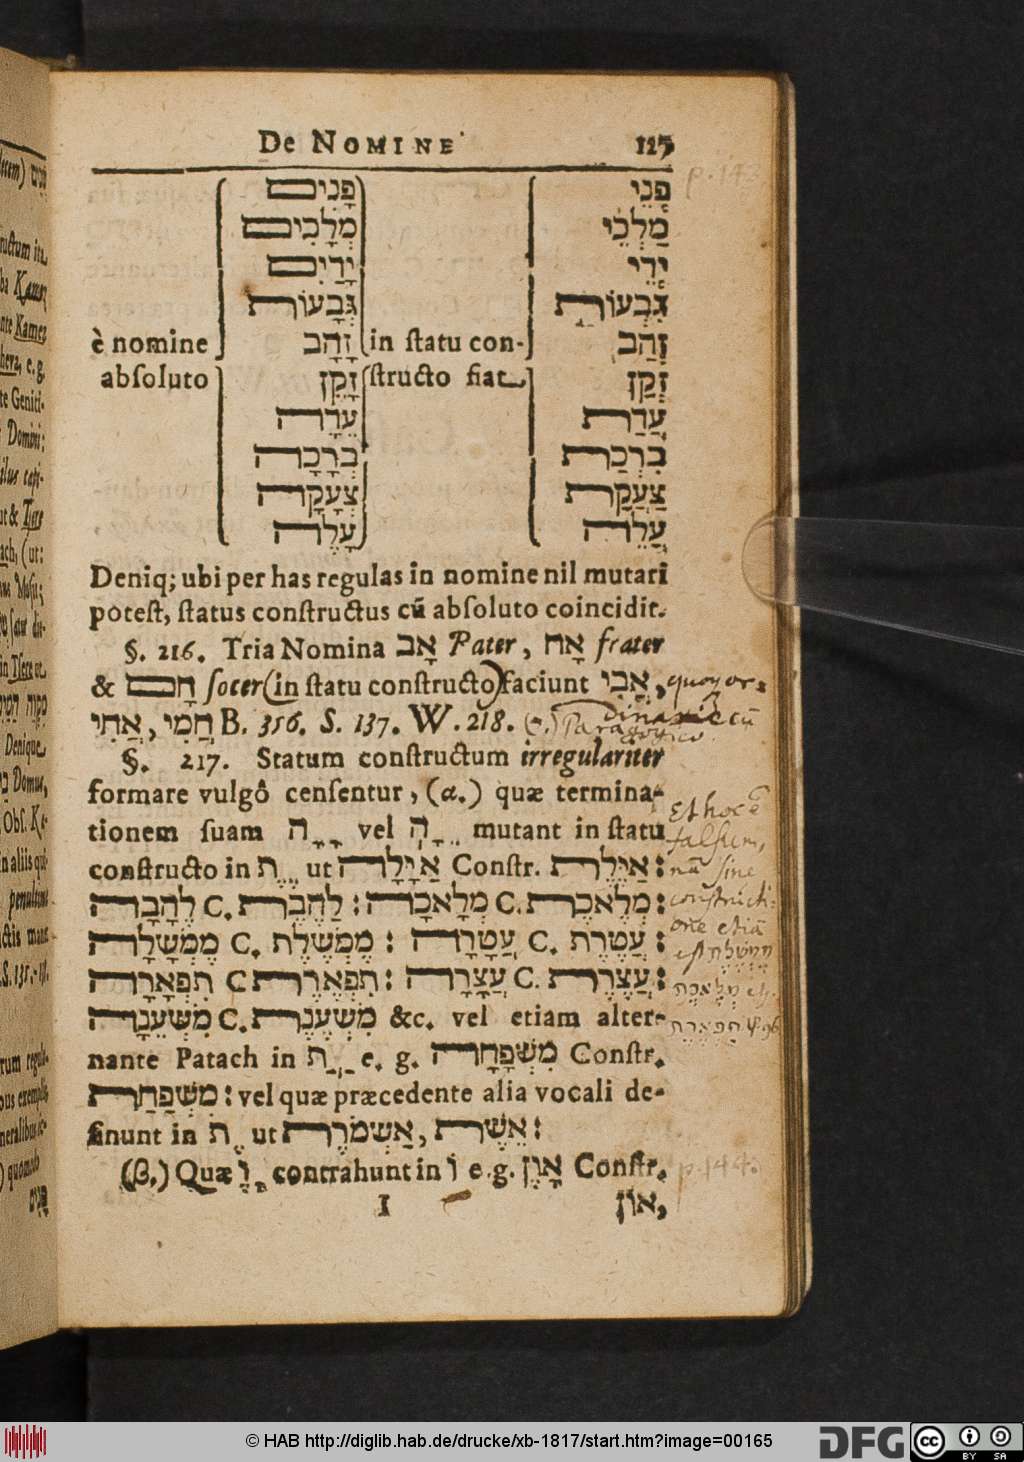 De NOMINE 125
פָּנִים פְּנֵי
מְלָכִים מַלְכֵי
יָדַיִם יְדֵי
גְּבָעוֹת גִּבְעוֹת
è nomine זָהָב in statu con- זְהַב
absoluto זָקֵן structo fiat זְקַן
עֵדָה עֲדַת
בְּרָכָה בִּרְכַּת
צְעָקָה צַעֲקַת
עָלֶה עֲלֵה
Deniq; ubi per has regulas in nomine nil mutari
potest, status constructus cū absoluto coincidit.
§. 216. Tria Nomina אָב Pater, אָח frater
& חָם socer (in statu constructo) faciunt אֲבִי, quoy or-
אֲחִי, חֲמִי B. 356. S. 137. W. 218. cū
Paragogico.
§. 217. Statum constructum irregulariter
formare vulgô censentur, (α.) quæ termina-
tionem suam ָ ָה vel ֵ ָה mutant in statu
constructo in ֶ ֶת ut אַיָּלָה Constr. אַיֶּלֶת :
מְלָאכָה C. מְלֶאכֶת : לֶהָבָה C. לַהֶבֶת
עֲטָרָה C. עֲטֶרֶת : מֶמְשָׁלָה C. מֶמְשֶׁלֶת :
עֲצָרָה C. עֲצֶרֶת : תִּפְאָרָה C תִּפְאֶרֶת :
מִשְׁעֵנָה C. מִשְׁעֶנֶת &c. vel etiam alter-
nante Patach in ַ ַת e. g. מִשְׁפָּחָה Constr.
מִשְׁפַּחַת : vel quæ præcedente alia vocali de-
sinunt in ֶת ut אַשְׁמֹרֶת, אֵשֶׁת :
(β.) Quæ ָ וֶ contrahunt in וֹ e. g. אָוֶן Constr.
I אוֹן,
Et hoc ē
falsum,
nā sine
constructi-
one etiā
est
p. 144.
© HAB http://diglib.hab.de/drucke/xb-1817/start.htm?image=00165
DFG
cc
BY SA